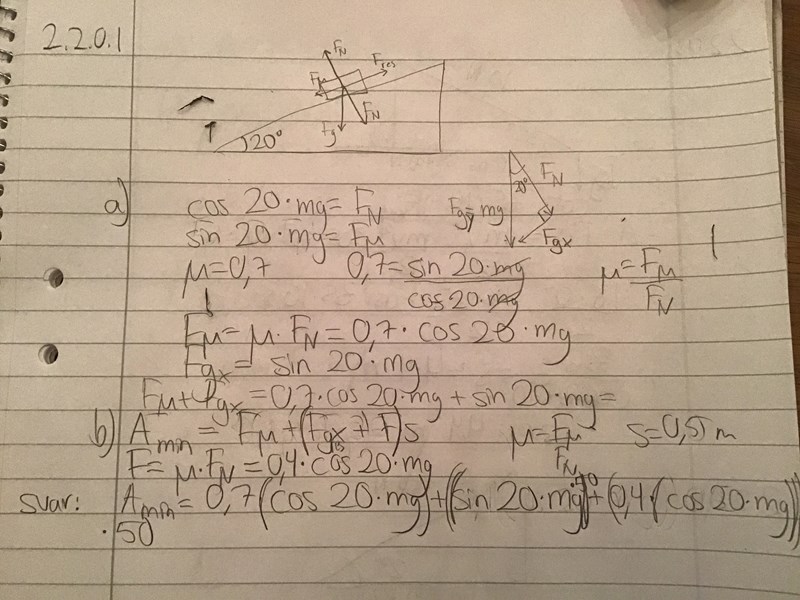 2.2.0.1
F_N
F_res
F_μ
F_N
F_g
20°
F_N
20°
mg
F_gx
a)
cos 20·mg = F_N
sin 20·mg = F_μ
μ=0,7 0,7 = sin 20·mg / cos 20·mg μ = F_μ / F_N
F_μ = μ·F_N = 0,7·cos 20·mg
F_gx = sin 20·mg
F_μ + F_gx = 0,7·cos 20·mg + sin 20·mg =
b) A_min = F_μ + (F_gx + F)s μ = F_μ / F_N s=0,5 m
F = μ·F_N = 0,4·cos 20·mg
svar: A_min = 0,7(cos 20·mg) + ((sin 20·mg) + (0,4(cos 20·mg))
·50